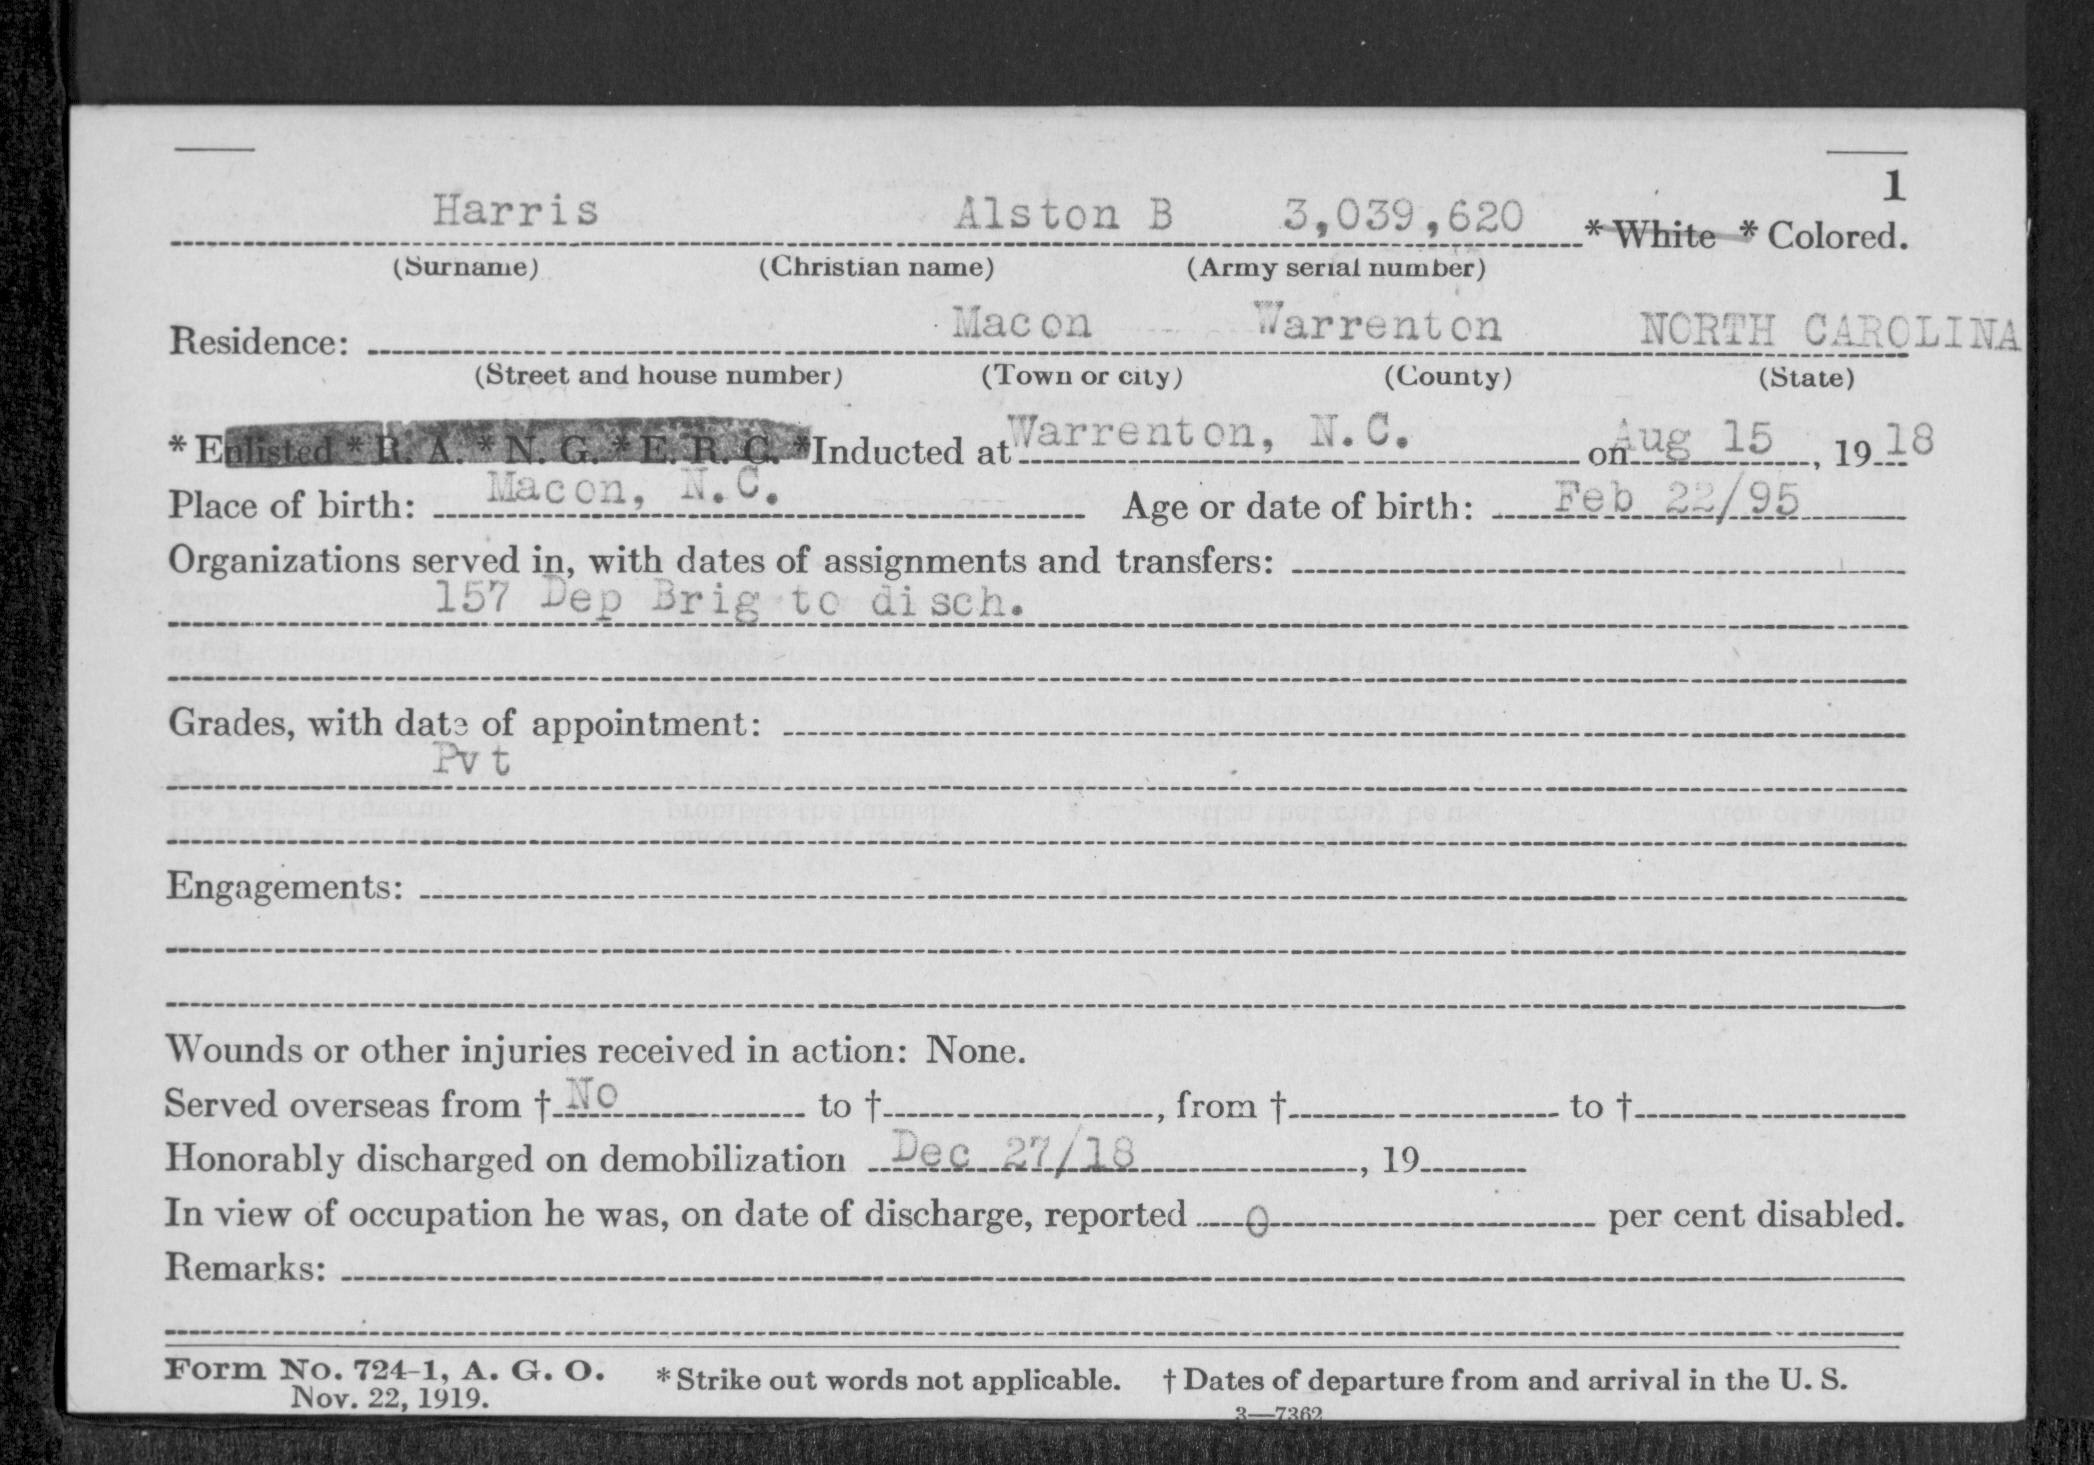 1
Harris Alston B 3,039,620 * White * Colored.
(Surname) (Christian name) (Army serial number)
Residence: Macon Warrenton NORTH CAROLINA
(Street and house number) (Town or city) (County) (State)
* Enlisted * R. A. * N. G. * E. R. C. * Inducted at Warrenton, N.C. on Aug 15, 1918
Place of birth: Macon, N.C. Age or date of birth: Feb 22/95
Organizations served in, with dates of assignments and transfers:
157 Dep Brig to disch.
Grades, with date of appointment:
Pvt
Engagements:
Wounds or other injuries received in action: None.
Served overseas from † No to †, from † to †
Honorably discharged on demobilization Dec 27/18, 19
In view of occupation he was, on date of discharge, reported 0 per cent disabled.
Remarks:
Form No. 724-1, A. G. O. * Strike out words not applicable. † Dates of departure from and arrival in the U. S.
Nov. 22, 1919.
3—7362